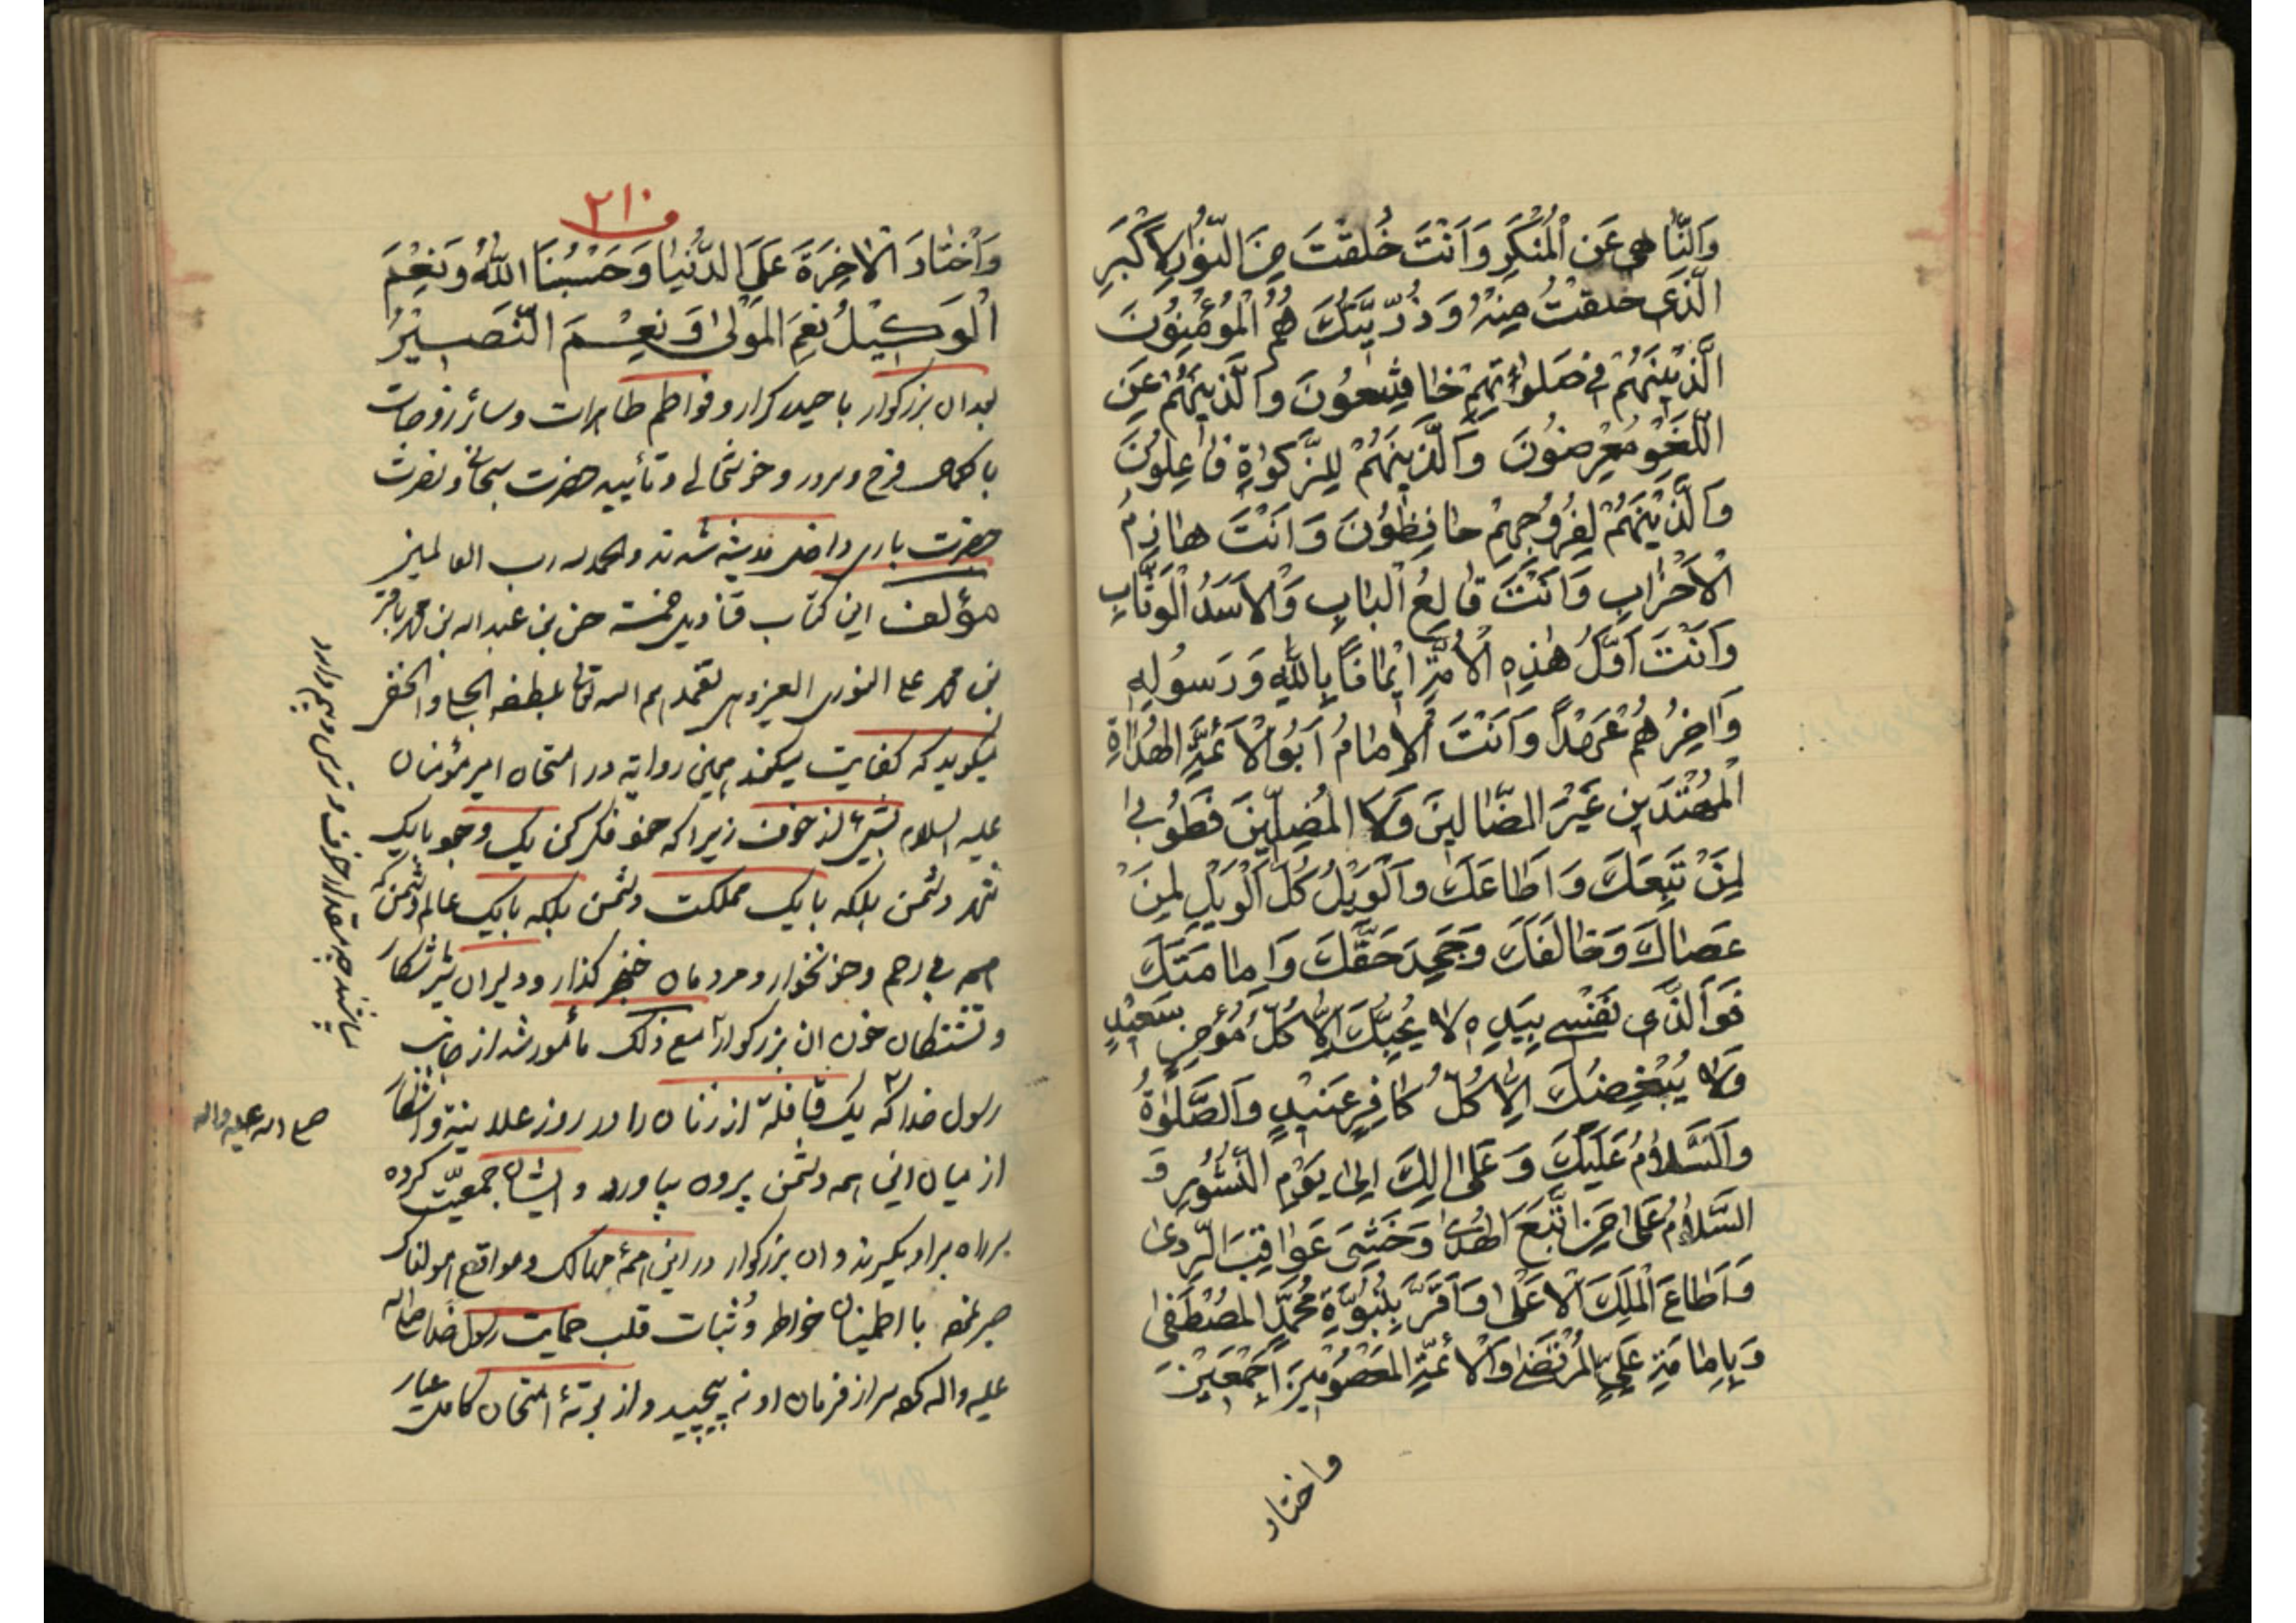 وَالنّٰاهي عَنِ الْمُنْكَرِ وَاَنْتَ خُلِقْتَ مِنَ النُّورِ الْاَكْبَرِ
الَّذى خلقتُ مِنْهُ وَذُرِّيَّتُكَ هُمُ الْمُؤْمِنُونَ
الَّذينَهُمْ في صَلوٰاتِهِمْ خٰاشِعُونَ وَالَّذينَهُمْ عَنِ
اللَّغْوِ مُعْرِضُونَ وَالَّذينَهُمْ لِلزَّكوٰةِ فٰاعِلُونَ
وَالَّذينَهُمْ لِفُرُوجِهِمْ حٰافِظُونَ وَاَنْتَ هٰازِمُ
الْاَحْزٰابِ وَاَنْتَ قٰالِعُ الْبٰابِ وَالْاَسَدُ الْوَثّٰابِ
وَاَنْتَ اَوَّلُ هٰذِهِ الْاُمَّةِ ايمٰانًا بِاللّٰهِ وَرَسُولِهِ
وَاٰخِرُهُمْ عَهْدًا وَاَنْتَ الْاِمٰامُ اَبُو الْاَئِمَّةِ الْهُدٰاةِ
الْمُهْتَدينَ غَيْرَ الضّٰالّينَ وَلَا الْمُضِلّينَ فَطُوبىٰ
لِمَنْ تَبِعَكَ وَاَطٰاعَكَ وَالْوَيْلُ كُلُّ الْوَيْلِ لِمَنْ
عَصٰاكَ وَخٰالَفَكَ وَجَحَدَ حَقَّكَ وَاِمٰامَتَكَ
فَوَالَّذى نَفْسي بِيَدِهِ لا يُحِبُّكَ اِلّٰا كُلُّ مُؤْمِنٍ سَعيدٍ
وَلا يُبْغِضُكَ اِلّٰا كُلُّ كٰافِرٍ عَنيدٍ وَالصَّلوٰةُ
وَالسَّلٰامُ عَلَيْكَ وَعَلىٰ اٰلِكَ اِلىٰ يَوْمِ النُّشُورِ وَ
السَّلٰامُ عَلىٰ مَنِ اتَّبَعَ الْهُدىٰ وَخَشِيَ عَوٰاقِبَ الرَّدىٰ
وَاَطٰاعَ الْمَلِكَ الْاَعْلىٰ وَاَقَرَّ بِنُبُوَّةِ مُحَمَّدٍ الْمُصْطَفىٰ
وَبِاِمٰامَةِ عَلِيٍّ الْمُرْتَضىٰ وَالْاَئِمَّةِ الْمَعْصُومينَ اَجْمَعينَ
واختار
۲۱۰
وَاَخْتٰارَ الْاٰخِرَةَ عَلَى الدُّنْيٰا وَحَسْبُنَا اللّٰهُ وَنِعْمَ
الْوَكيلُ نِعْمَ الْمَوْلىٰ وَنِعْمَ النَّصيرُ
بعد ان بزرکوار با حیدر کرار و فواطم طاهرات و سائر زوجات
با کمال فرح و سرور و خوشحالی و تأیید حضرت سبحان و نصرت
حضرت باری داخل مدینه شدند والحمد لله رب العالمین
مؤلف این کتاب قنادیل خمسة حسن بن عبد الله بن محمد باقر
بن محمد علی النوری تغمدهم الله تعالی بلطفه الجلی والخفی
میکوید که کفایت میکند همین روایة در امتحان امیر مؤمنان
علیه السلام زیرا که فکر کن یک وجود با یک
شهر دشمن بلکه با یک مملکت دشمن بلکه با یک عالم دشمن که
همه بی رحم و خونخوار و مردمان خنجر کذار و دلیران شیر شکار
و تشنکان خون ان بزرکوار مع ذلک مأمور شد از جانب
رسول خدا که یک قافله از زنان را در روز علانیة و اشکار
از میان این همه دشمن بیرون بیاورد و ایشان جمعیّت کرده
سر راه بر او بکیرند و ان بزرکوار در این همۀ مهالک و مواقع هولناک
صبر نمود با اطمینان خواطر و ثبات قلب حمایت رسول خدا صلی الله
علیه واله سر از فرمان او نه پیچید و از بوتۀ امتحان کامل عیار
صلی الله علیه واله